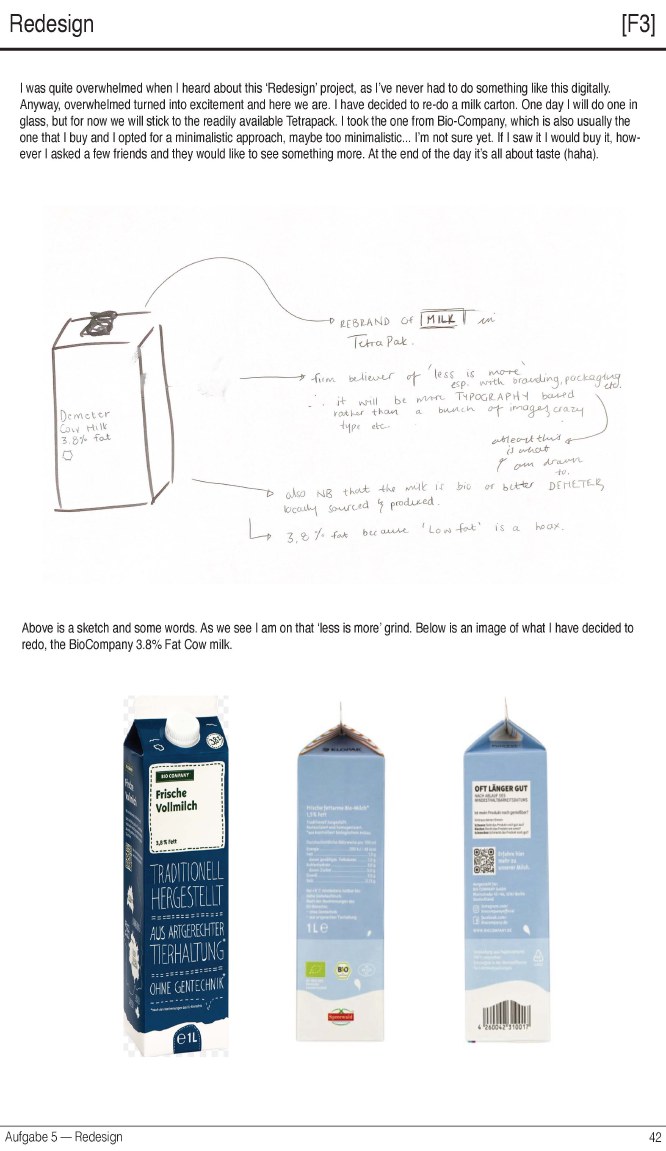 Redesign
[F3]
I was quite overwhelmed when I heard about this ‘Redesign’ project, as I’ve never had to do something like this digitally.
Anyway, overwhelmed turned into excitement and here we are. I have decided to re-do a milk carton. One day I will do one in
glass, but for now we will stick to the readily available Tetrapack. I took the one from Bio-Company, which is also usually the
one that I buy and I opted for a minimalistic approach, maybe too minimalistic... I’m not sure yet. If I saw it I would buy it, how-
ever I asked a few friends and they would like to see something more. At the end of the day it’s all about taste (haha).
REBRAND OF MILK in
Tetra Pak.
firm believer of 'less is more'
esp. with branding, packaging
etc.
∴ it will be more TYPOGRAPHY based
rather than a bunch of images, crazy
type etc.
atleast this
is what
I am drawn
to.
Demeter
Cow Milk
3.8% fat
also NB that the milk is bio or better DEMETER,
locally sourced & produced.
3,8 % fat because 'Low fat' is a hoax.
Above is a sketch and some words. As we see I am on that ‘less is more’ grind. Below is an image of what I have decided to
redo, the BioCompany 3.8% Fat Cow milk.
BIO COMPANY
Frische
Vollmilch
3,8 % Fett
TRADITIONELL
HERGESTELLT
AUS ARTGERECHTER
TIERHALTUNG*
OHNE GENTECHNIK*
e 1L
Frische fettarme Bio-Milch*
1,5% Fett
1L e
BIO
OFT LÄNGER GUT
NACH ABLAUF DES
MINDESTHALTBARKEITSDATUMS
Erfahre hier
mehr zu
unserer Milch.
4 260042 310017
Aufgabe 5 — Redesign
42